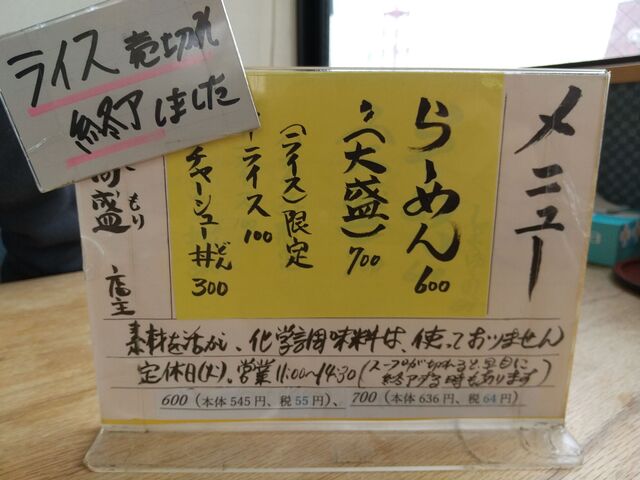 ライス売切れ
終了しました
メニュー
らーめん 600
〃(大盛) 700
(ライス)限定
ーライス 100
チャーシュー丼 どん 300
盛 もり
店主
素材を活かし、化学調味料は、使っておりません
定休日(火)、営業11:00〜14:30(スープが切れると早目に終了する時もあります)
600(本体 545 円、税 55 円)、 700(本体 636 円、税 64 円)